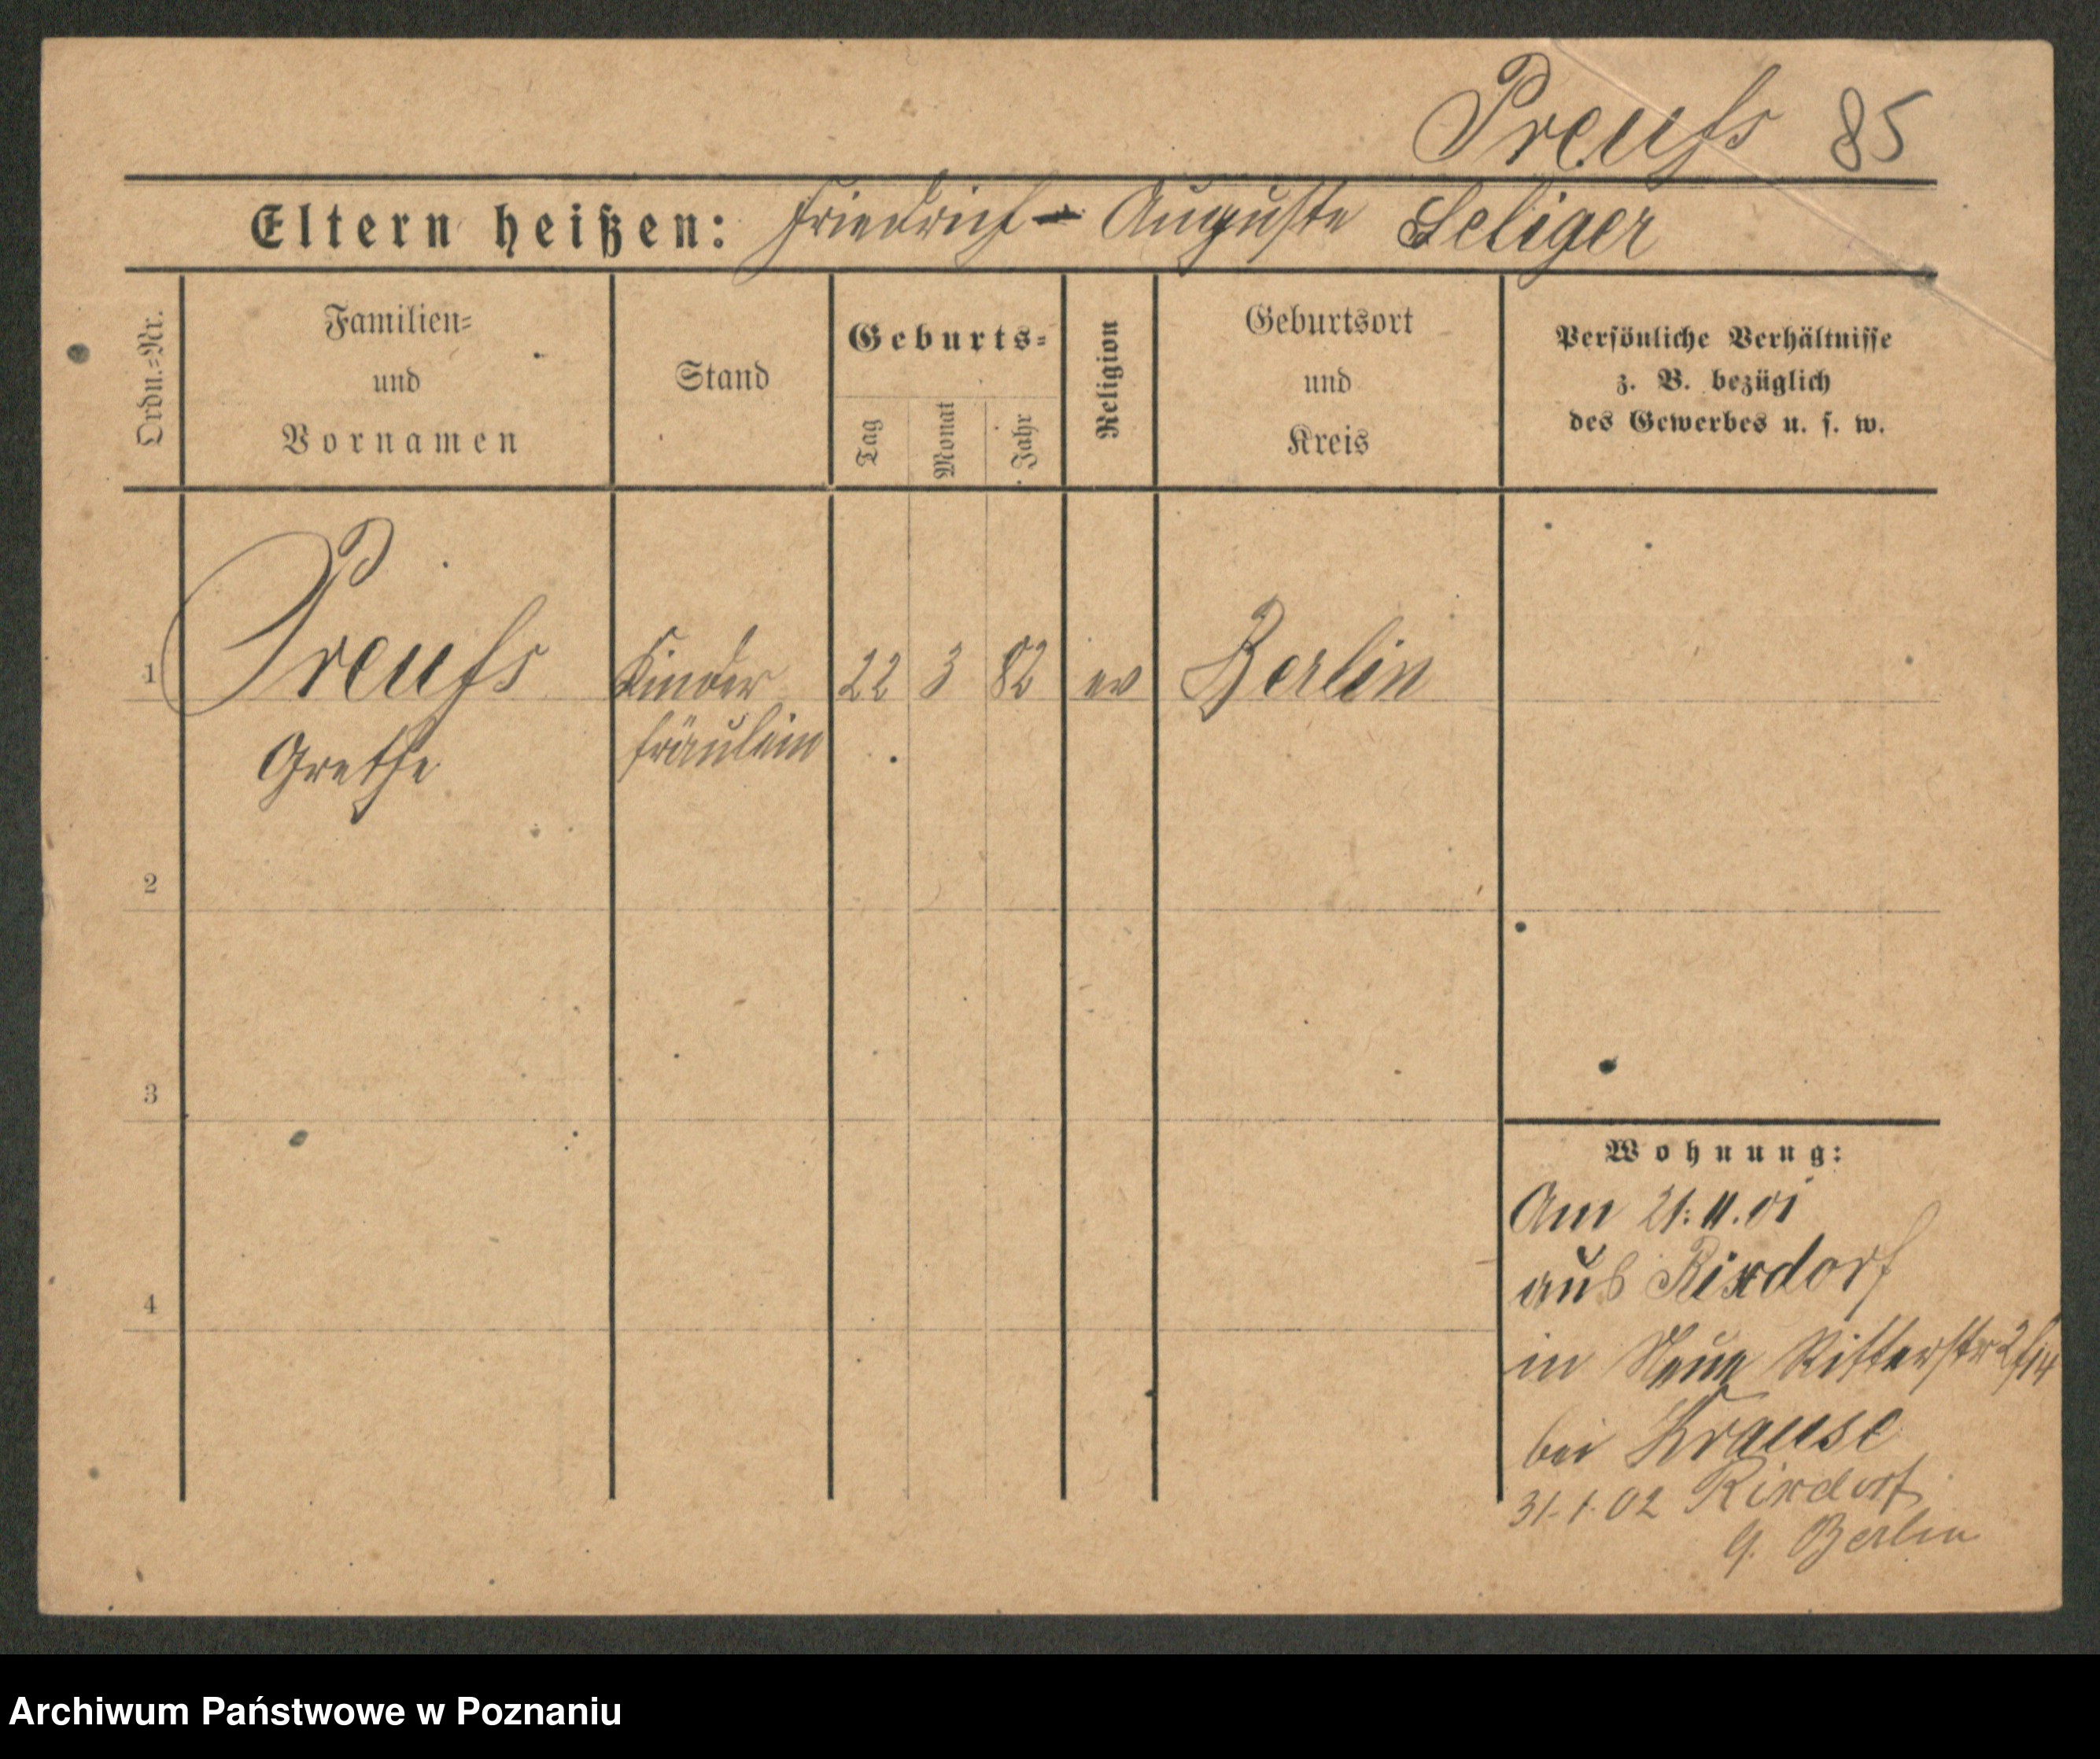 Preuſs 85
Eltern heißen: Friedrich - Auguste Seliger
Ordn.=Nr.
Familien=
und
Vornamen
Stand
Geburts=
Tag
Monat
Jahr
Religion
Geburtsort
und
Kreis
Persönliche Verhältnisse
z. B. bezüglich
des Gewerbes u. s. w.
1 Preuſs Kinder 22 3 82 ev Berlin
Grethe fräulein
2
3
4
Wohnung:
Am 21.11.01
aus Rixdorf
in Neue Ritterstr
bei Krause
31.1.02 Rixdorf
b. Berlin
Archiwum Państwowe w Poznaniu